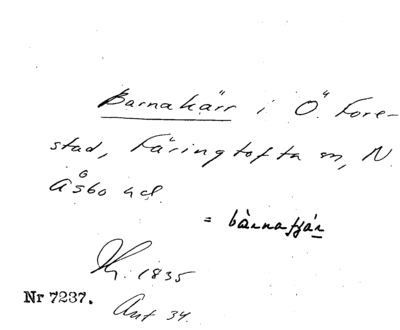 Barnakärr i Ö. Fore-
stad, Färingtofta sn, N.
Åsbo hd.
= bàrnatjár
Kr. 1835
Nr 7237. Ant 34.